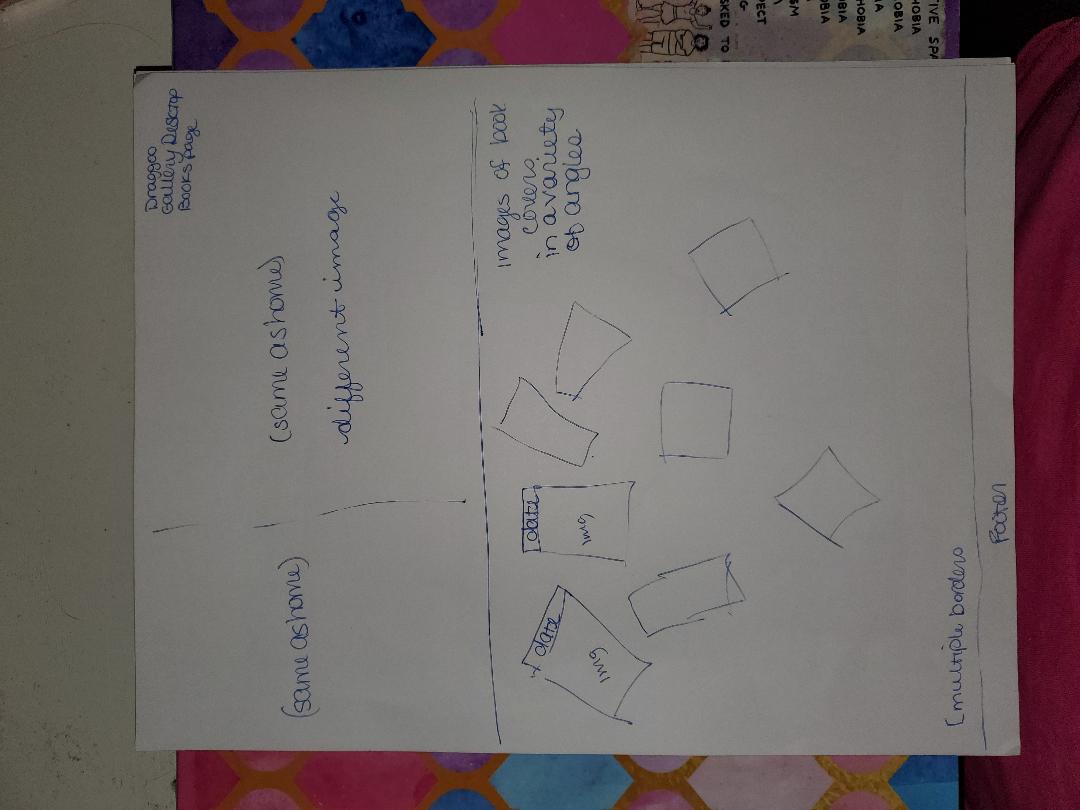 Draggoo
Gallery Desktop
Books Page
(same as home)
(same as home)
different image
Images of book
covers
in a variety
of angles
date
img
date
img
[multiple borders
Footer
TIVE SPA
HOBIA
OBIA
OBIA
SM
PECT
SKED TO